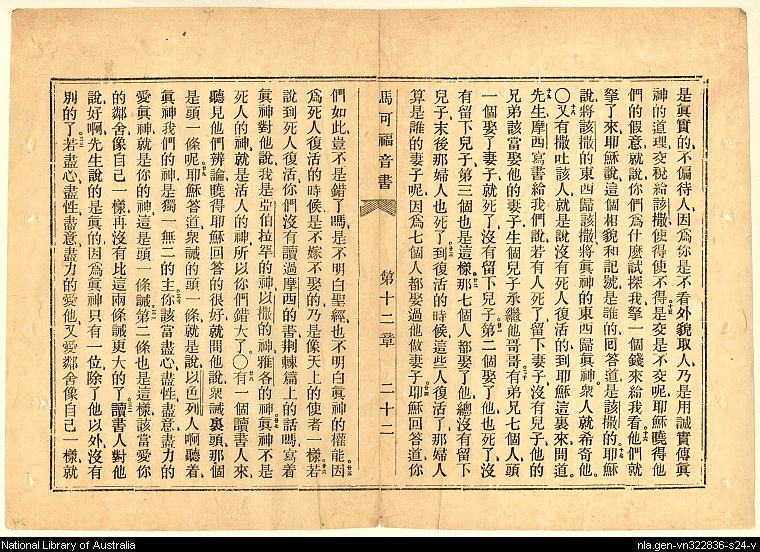 是眞實的不偏待人因爲你是不看外貌取人乃是用誠實傳眞
神的道理交稅給該撒使得使不得是交是不交呢耶穌曉得他
們的假意就說你們爲什麽試探我拏一個錢來給我看他們就
拏了來耶穌說這個相貌和記號是誰的回答道是該撒的耶穌
說將該撒的東西歸該撒將眞神的東西歸眞神衆人就希奇他
〇又有撒吐該人就是說沒有死人復活的到耶穌這裏來問道
先生摩西寫書給我們說若有人死了留下妻子沒有兒子他的
兄弟該當娶他的妻子生個兒子承繼他哥哥有弟兄七個人頭
一個娶了妻子就死了沒有留下兒子第二個娶了他也死了沒
有留下兒子第三個也是這樣那七個人都娶了他總沒有留下
兒子末後那婦人也死了到復活的時候這些人復活了那婦人
算是誰的妻子呢因爲七個人都娶過他做妻子耶穌回答道你
馬可福音書 第十二章 二十二
們如此豈不是錯了嗎是不明白聖經也不明白眞神的權能因
爲死人復活的時候是不嫁不娶的乃是像天上的使者一樣若
說到死人復活你們沒有讀過摩西的書荆棘篇上的話嗎寫着
眞神對他說我是亞伯拉罕的神以撒的神雅各的神眞神不是
死人的神就是活人的神所以你們錯大了〇有一個讀書人來
聽見他們辨論曉得耶穌回答的很好就問他說衆誡裏頭那個
是頭一條呢耶穌答道衆誡的頭一條就是說以色列人啊聽着
眞神我們的神是獨一無二的主你該當盡心盡性盡意盡力的
愛眞神就是你的神這是頭一條誡第二條也是這樣該當愛你
的鄰舍像自己一樣再沒有比這兩條誡更大的了讀書人對他
說好啊先生說的是眞的因爲眞神只有一位除了他以外沒有
別的了若盡心盡性盡意盡力的愛他又愛鄰舍像自己一樣就
National Library of Australia
nla.gen-vn322836-s24-v